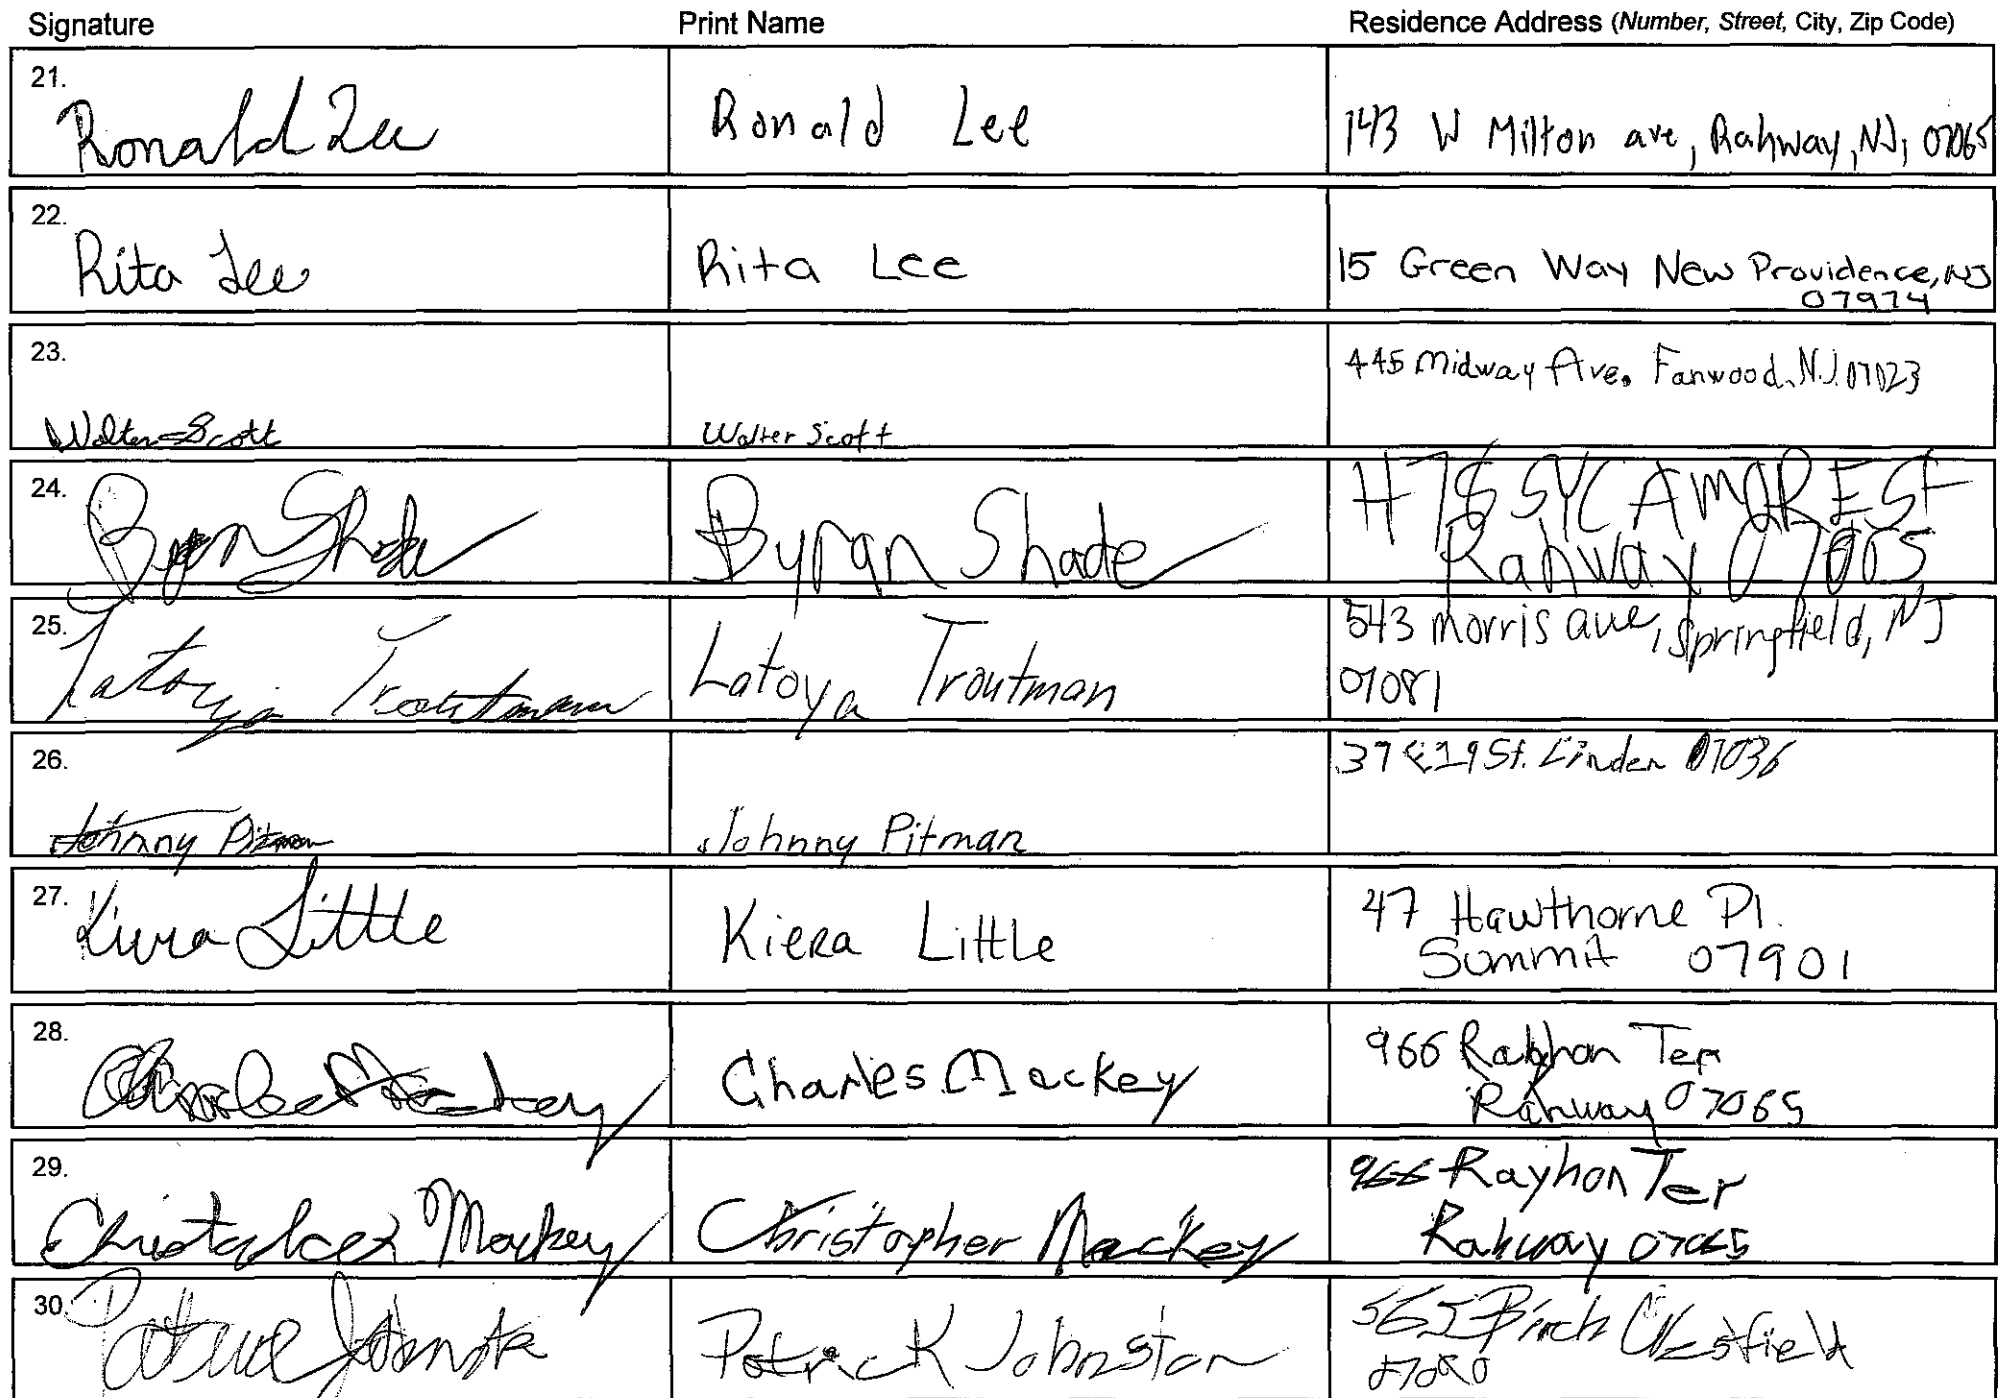 Signature Print Name Residence Address (Number, Street, City, Zip Code)
21.
Ronald Lee Ronald Lee 143 W Milton ave, Rahway, NJ, 07065
22.
Rita Lee Rita Lee 15 Green Way New Providence, NJ
07974
23.
445 Midway Ave. Fanwood, N.J. 07023
Walter Scott Walter Scott
24.
Byran Shade Byran Shade SYCAMORE ST
Rahway 07065
25.
Latoya Troutman Latoya Troutman 543 Morris ave, Springfield, NJ
07081
26.
37 E 19 St. Linden 07036
Johnny Pitman Johnny Pitman
27.
Kiera Little Kiera Little 47 Hawthorne Pl.
Summit 07901
28.
Charles Mackey Charles Mackey 966 Ter
Rahway 07065
29.
Christopher Mackey Christopher Mackey 966 Rayhon Ter
Rahway 07065
30.
Patrick Johnston Patrick Johnston 565 Birch Westfield
07090